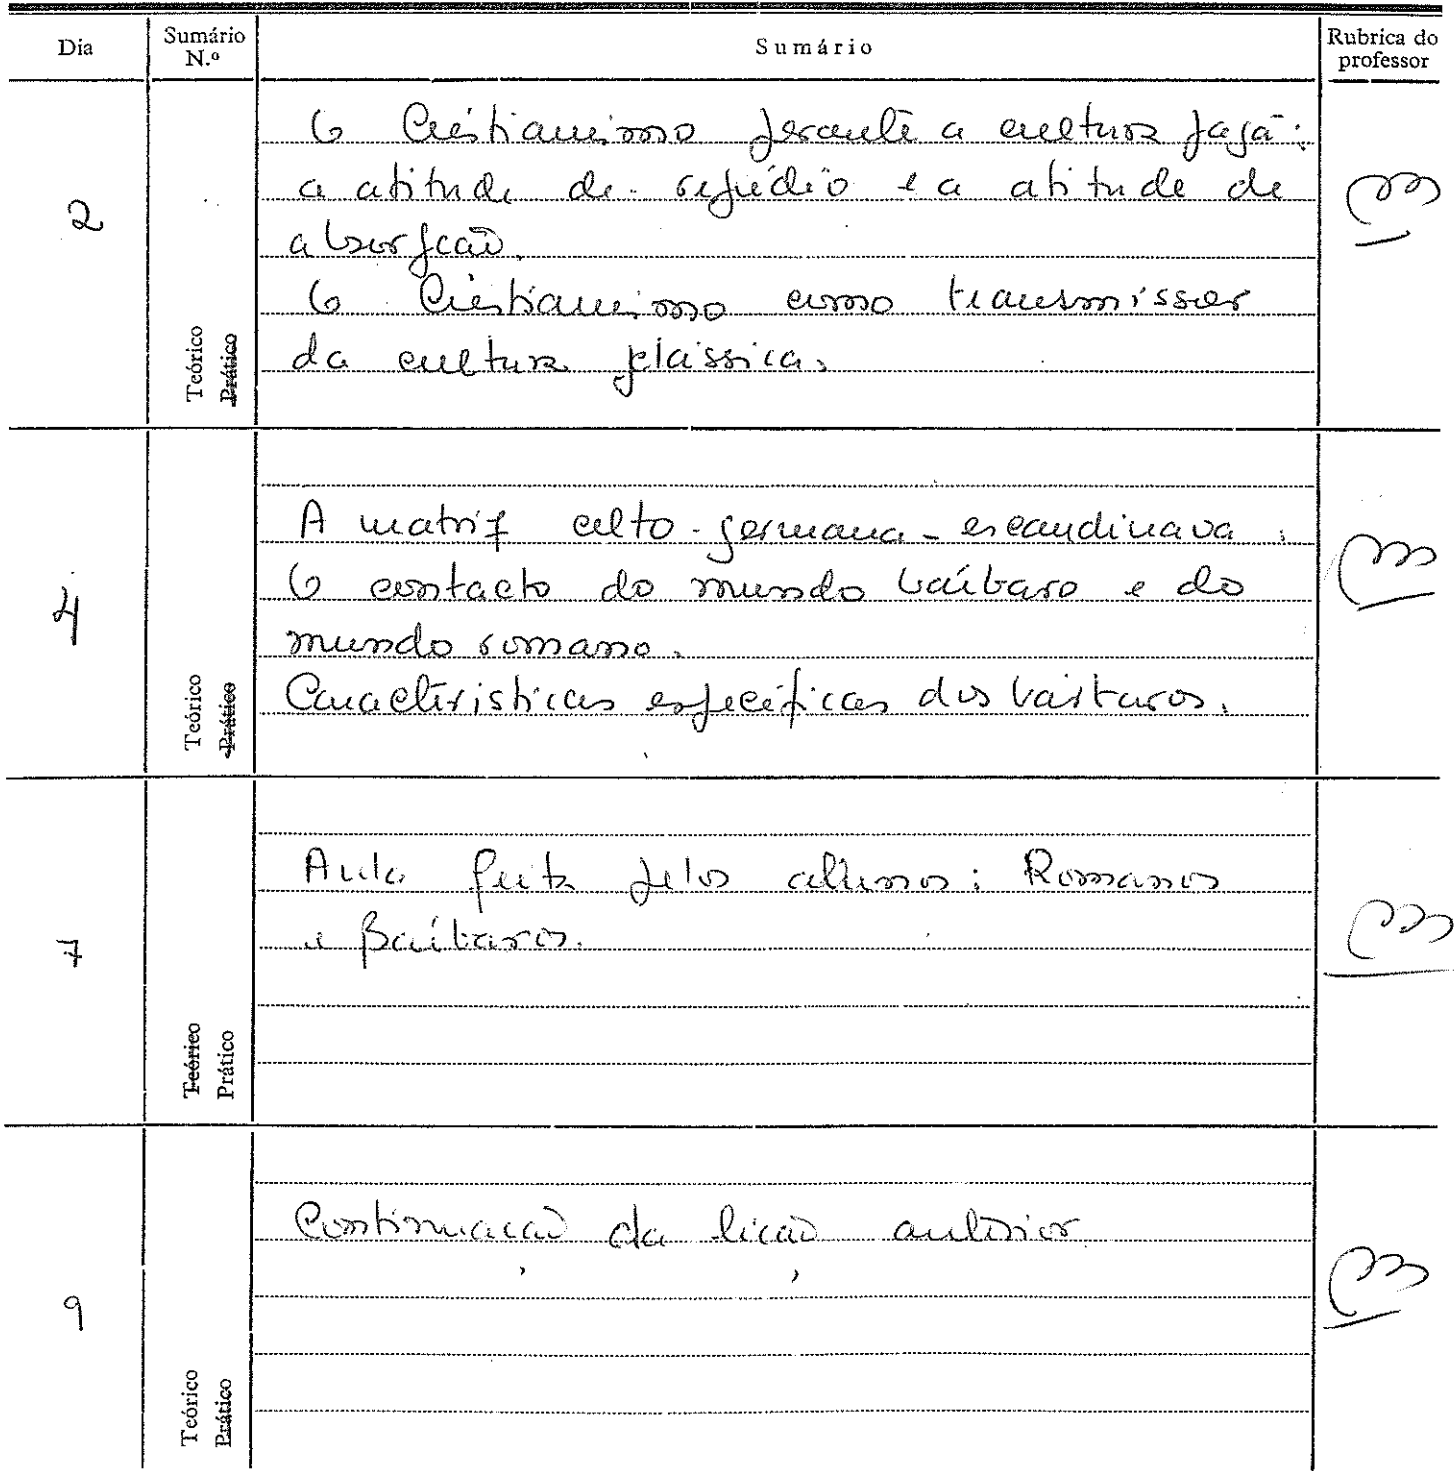 Dia Sumário N.º Sumário Rubrica do professor
O Cristianismo perante a cultura pagã:
a atitude de repúdio e a atitude de
2
absorpção.
O Cristianismo como transmissor
da cultura clássica.
Teórico
Prático
A matriz celto-germana-escandinava.
O contacto do mundo bárbaro e do
4
mundo romano.
Características específicas dos bárbaros.
Teórico
Prático
Aula feita pelos alunos: Romanos
e Bárbaros.
7
Teórico
Prático
Continuação da lição anterior
9
Teórico
Prático